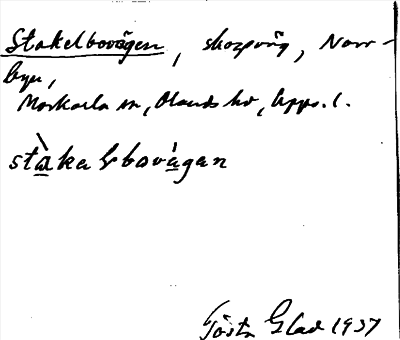 Stakelbovägen, skogsväg, Norr-
byn,
Morkarla sn, Olands hd, Uppl.
stàkaLbovágan
Gösta Glad 1937